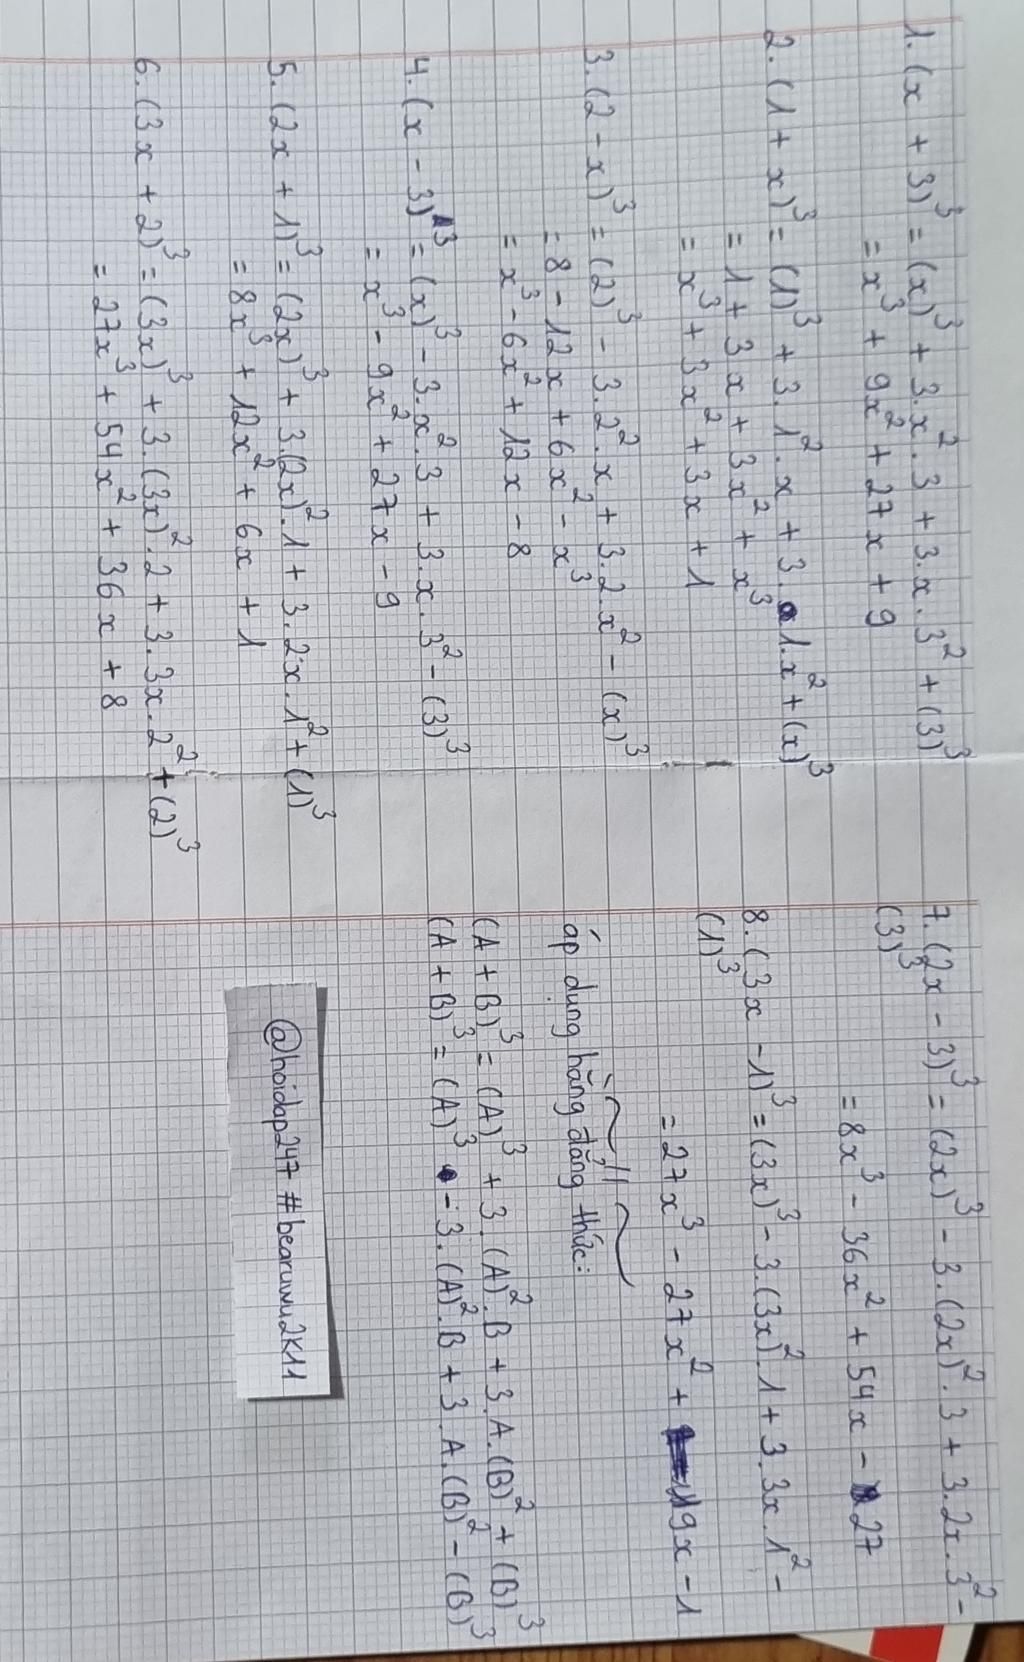 1. (x + 3)³ = (x)³ + 3.x².3 + 3.x.3² + (3)³
= x³ + 9x² + 27x + 9
2. (1 + x)³ = (1)³ + 3.1².x + 3.1.x² + (x)³
= 1 + 3x + 3x² + x³
= x³ + 3x² + 3x + 1
3. (2 - x)³ = (2)³ - 3.2².x + 3.2.x² - (x)³
= 8 - 12x + 6x² - x³
= x³ - 6x² + 12x - 8
4. (x - 3)³ = (x)³ - 3.x².3 + 3.x.3² - (3)³
= x³ - 9x² + 27x - 9
5. (2x + 1)³ = (2x)³ + 3.(2x)².1 + 3.2x.1² + (1)³
= 8x³ + 12x² + 6x + 1
6. (3x + 2)³ = (3x)³ + 3.(3x)².2 + 3.3x.2² + (2)³
= 27x³ + 54x² + 36x + 8
7. (2x - 3)³ = (2x)³ - 3.(2x)².3 + 3.2x.3² -
(3)³
= 8x³ - 36x² + 54x - 27
8. (3x - 1)³ = (3x)³ - 3.(3x)².1 + 3.3x.1² -
(1)³
= 27x³ - 27x² + 9x - 1
áp dụng hằng đẳng thức:
(A + B)³ = (A)³ + 3.(A)².B + 3.A.(B)² + (B)³
(A + B)³ = (A)³ - 3.(A)².B + 3.A.(B)² - (B)³
@hoidap247 #bearuwu2k11